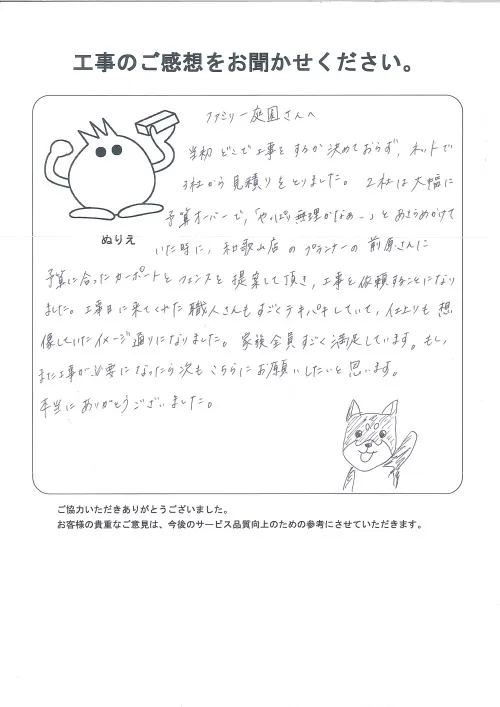 工事のご感想をお聞かせください。
ファミリー庭園さんへ
当初 どこで工事をするか決めておらず、ネットで
3社から見積りをとりました。 2社は大幅に
予算オーバーで、「やっぱり無理かなぁー」とあきらめかけて
いた時に、和歌山店のプランナーの前原さんに
ぬりえ
予算に合ったカーポートとフェンスを提案して頂き、工事を依頼することになり
ました。工事日に来てくれた職人さんもすごくテキパキしていて、仕上りも想
像していたイメージ通りになりました。 家族全員すごく満足しています。もし、
また工事が必要になったら次もこちらにお願いしたいと思います。
本当にありがとうございました。
ご協力いただきありがとうございました。
お客様の貴重なご意見は、今後のサービス品質向上のための参考にさせていただきます。